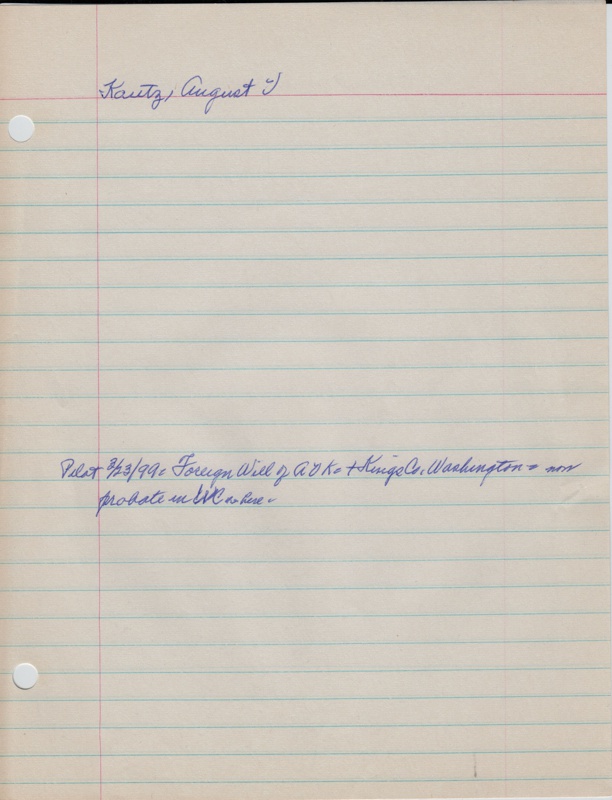 Kautz, August V
Pilot 3/23/99 = Foreign Will of A V K = + Kings Co. Washington = non
probate in WC no here =